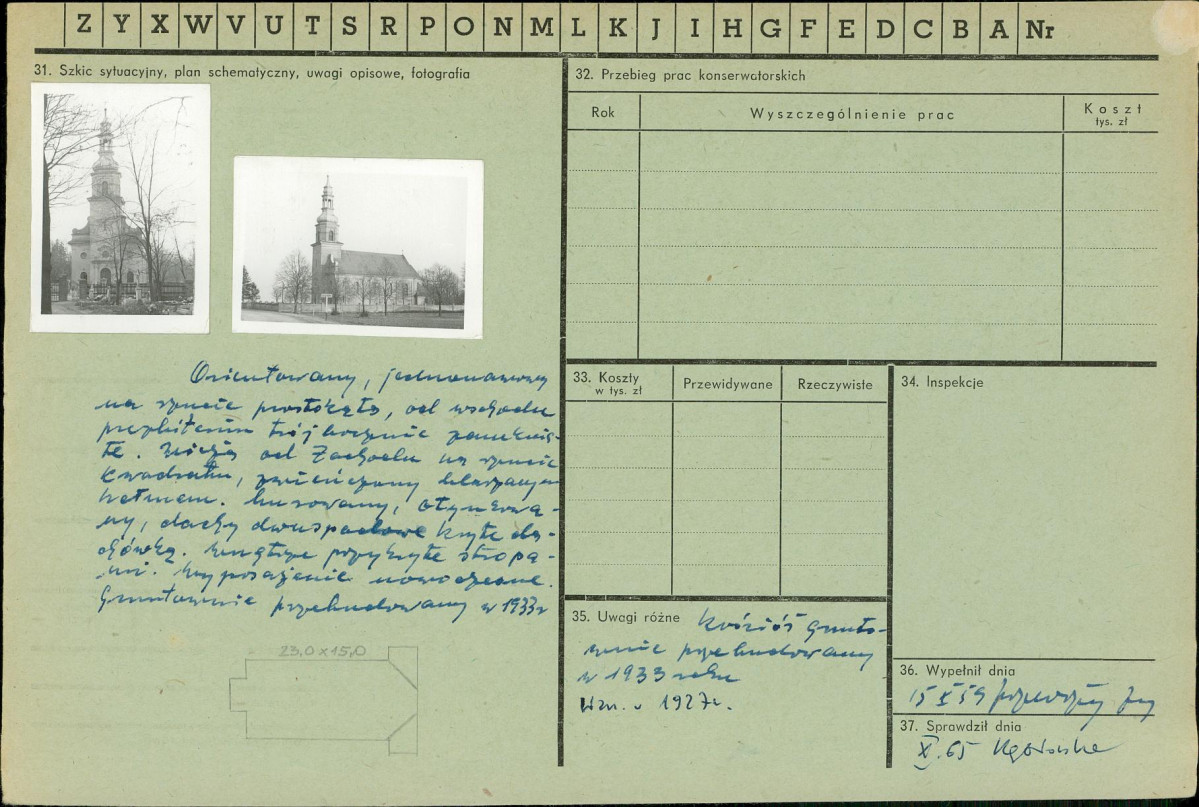 Z Y X W V U T S R P O N M L K J I H G F E D C B A Nr
31. Szkic sytuacyjny, plan schematyczny, uwagi opisowe, fotografia
Orientowany, jednonawowy
na rzucie prostokąta, od wschodu
prezbiterium trójbocznie zamknię-
te. Wieża od zachodu na rzucie
kwadratu, zwieńczony blaszanym
hełmem. Murowany, otynkowa-
ny, dachy dwuspadowe kryte da-
chówką. Wnętrze przykryte stropa-
mi. Wyposażenie nowoczesne.
Gruntownie przebudowany w 1933 r
23,0 x 15,0
32. Przebieg prac konserwatorskich
Rok
Wyszczególnienie prac
Koszt
tys. zł
33. Koszty
w tys. zł
Przewidywane
Rzeczywiste
34. Inspekcje
35. Uwagi różne Kościół grunto-
wnie przebudowany
w 1933 roku
Wzn. w 1927 r.
36. Wypełnił dnia
15 X 59
37. Sprawdził dnia
X. 65